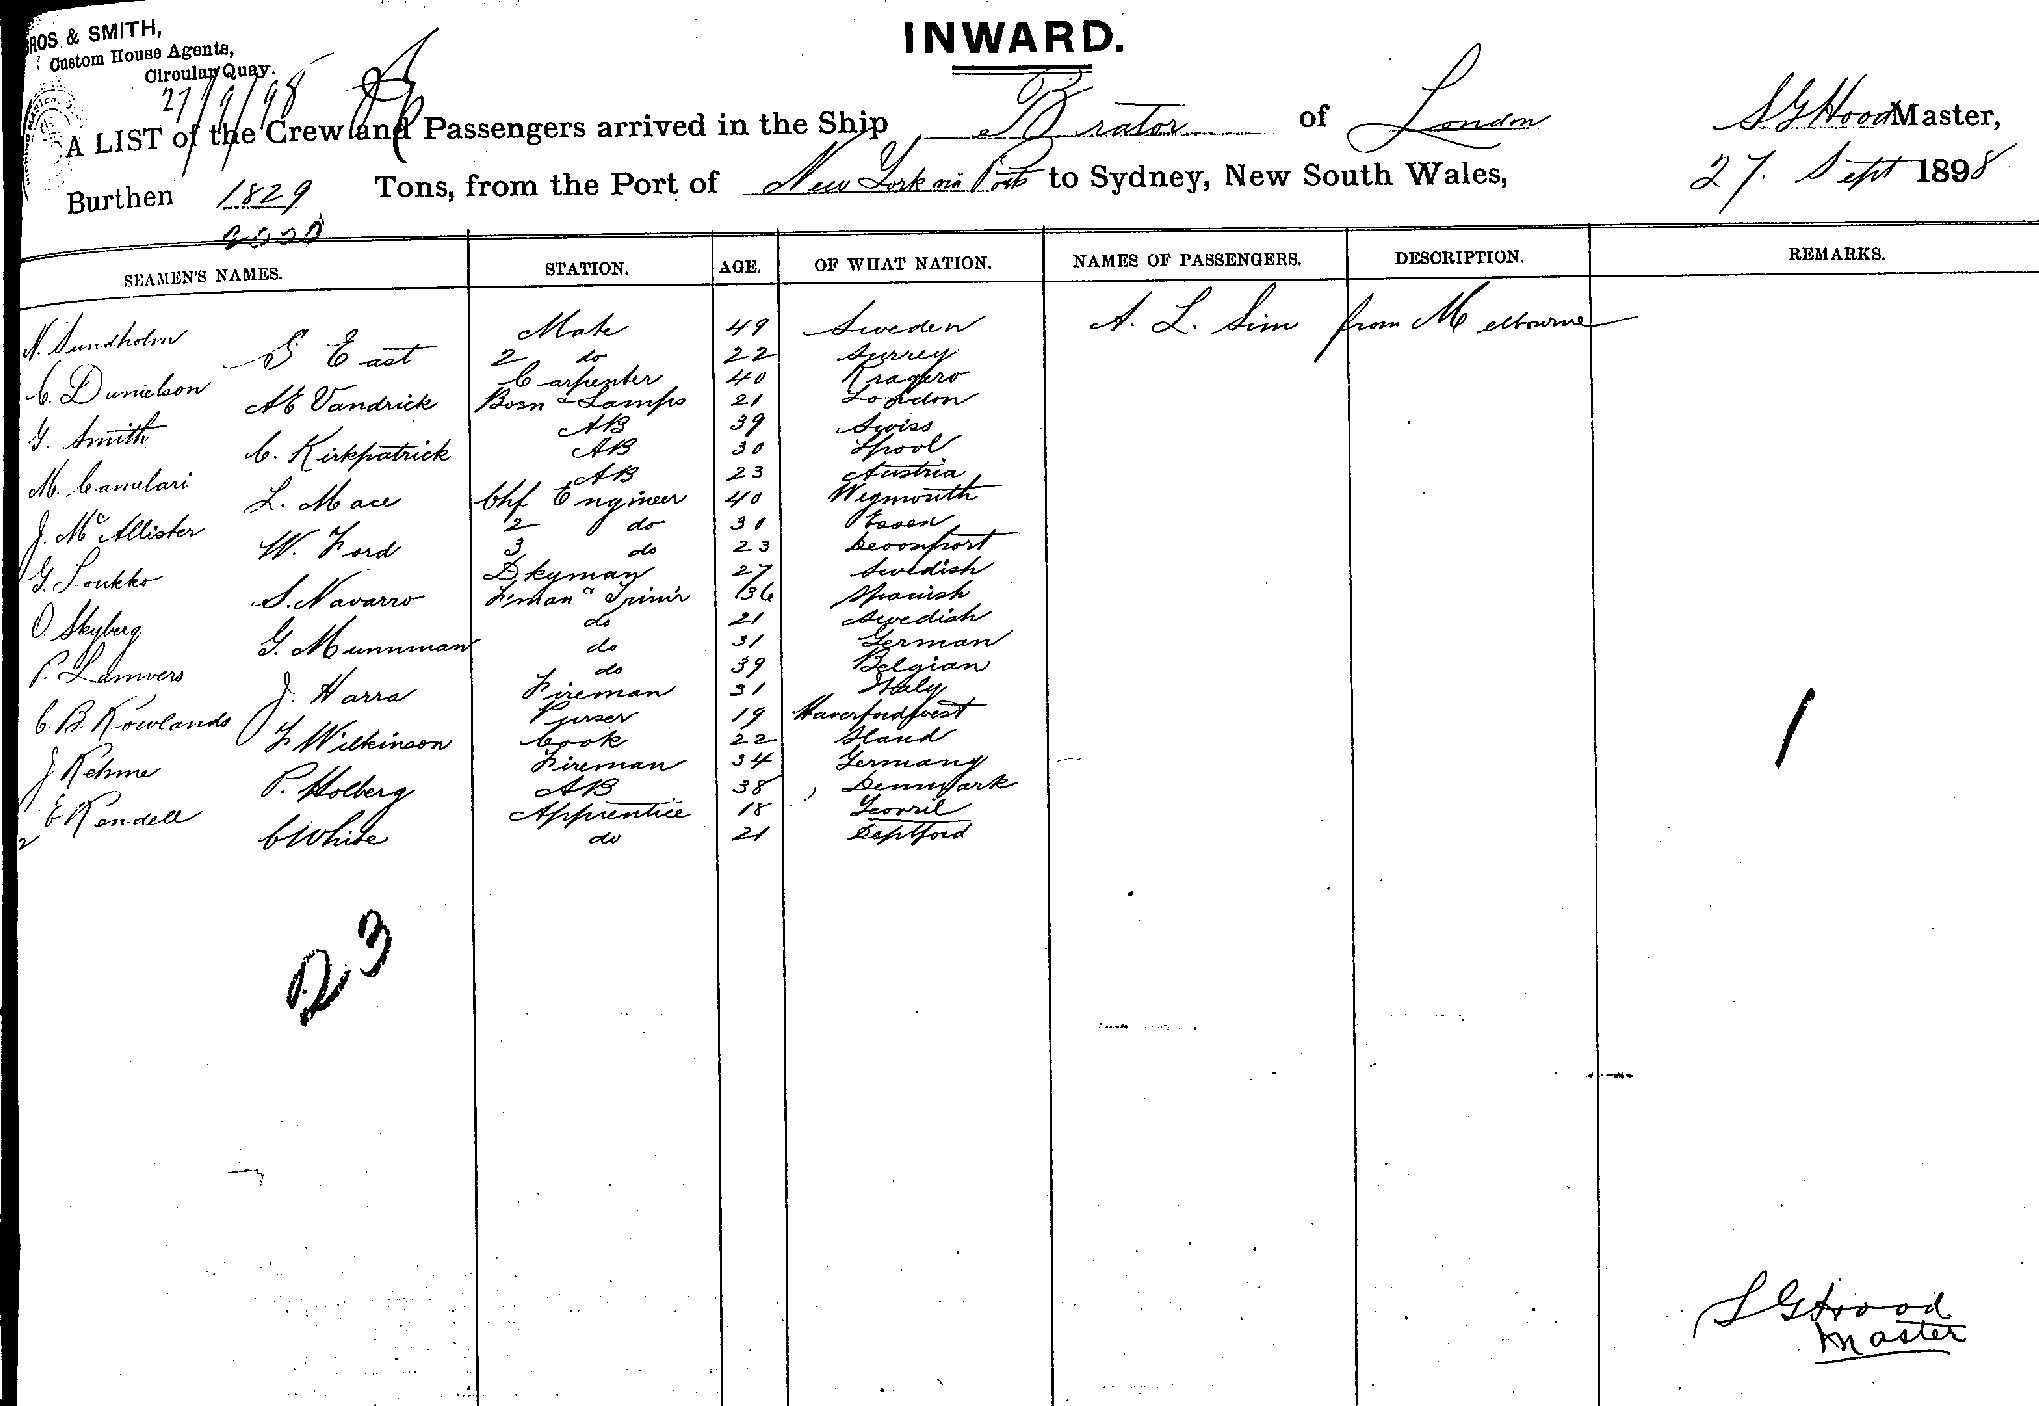 ROS. & SMITH,
Custom House Agents,
Circular Quay.
27/9/98
INWARD.
A LIST of the Crew and Passengers arrived in the Ship Brator of London S G Hood Master,
Burthen 1829 Tons, from the Port of New York via Ports to Sydney, New South Wales, 27. Sept 1898
SEAMEN'S NAMES. STATION. AGE. OF WHAT NATION. NAMES OF PASSENGERS. DESCRIPTION. REMARKS.
N. Sundholm Mate 49 Sweden A. L. Sim from Melbourne
S East 2 do 22 Surrey
C. Danielson Carpenter 40 Kragero
AE Vandrick Bosn & Lamps 21 London
G. Smith AB 39 Swiss
C. Kirkpatrick AB 30 Lpool
M. Camelari AB 23 Austria
L. Mace Chf Engineer 40 Weymouth
J. McAllister 2 do 31 Essen
W. Ford 3 do 23 Devonport
G. Soukko Dkyman 27 Swedish
S. Navarro F'man & Trim'r 36 Spanish
O Skyberg do 21 Swedish
G. Munnman do 31 German
P. Lamvers do 39 Belgian
J. Harra Fireman 31 Italy
C. B. Rowlands Purser 19 Haverfordwest
F Wilkinson Cook 22 Stand
J Rehme Fireman 34 Germany
P. Holberg AB 38 Denmark
E Kendell Apprentice 18 Yeovil
C White do 21 Deptford
1
23
S G Hood
Master